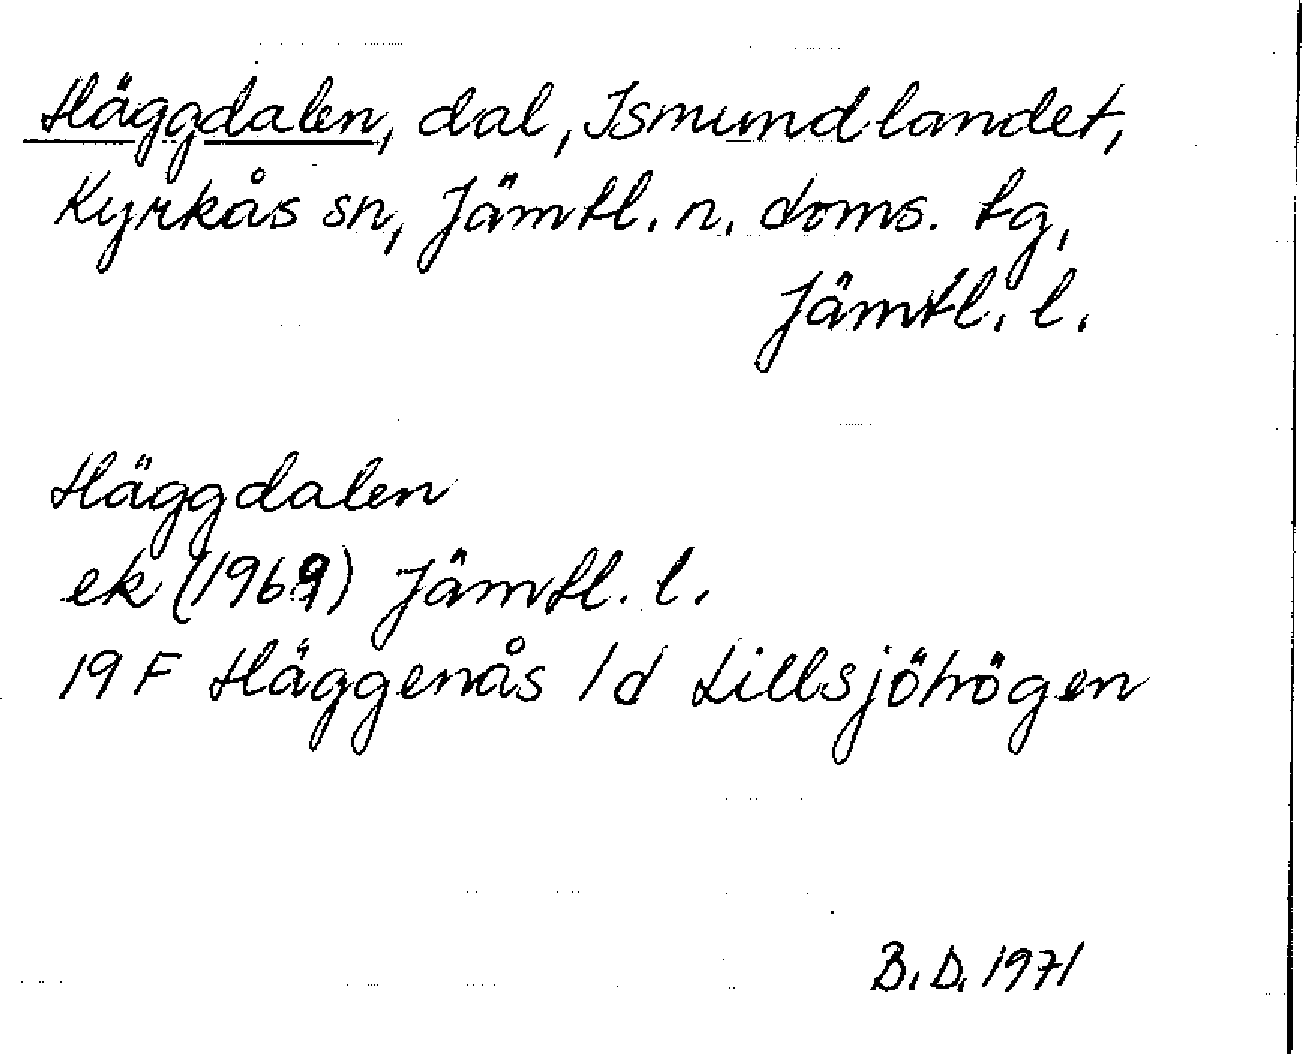 Häggdalen, dal, Ismundlandet,
Kyrkås sn, Jämtl. n. doms. tg,
Jämtl. l.
Häggdalen
ek (1969) Jämtl. l.
19 F Häggenås 1d Lillsjöhögen
B. D. 1971